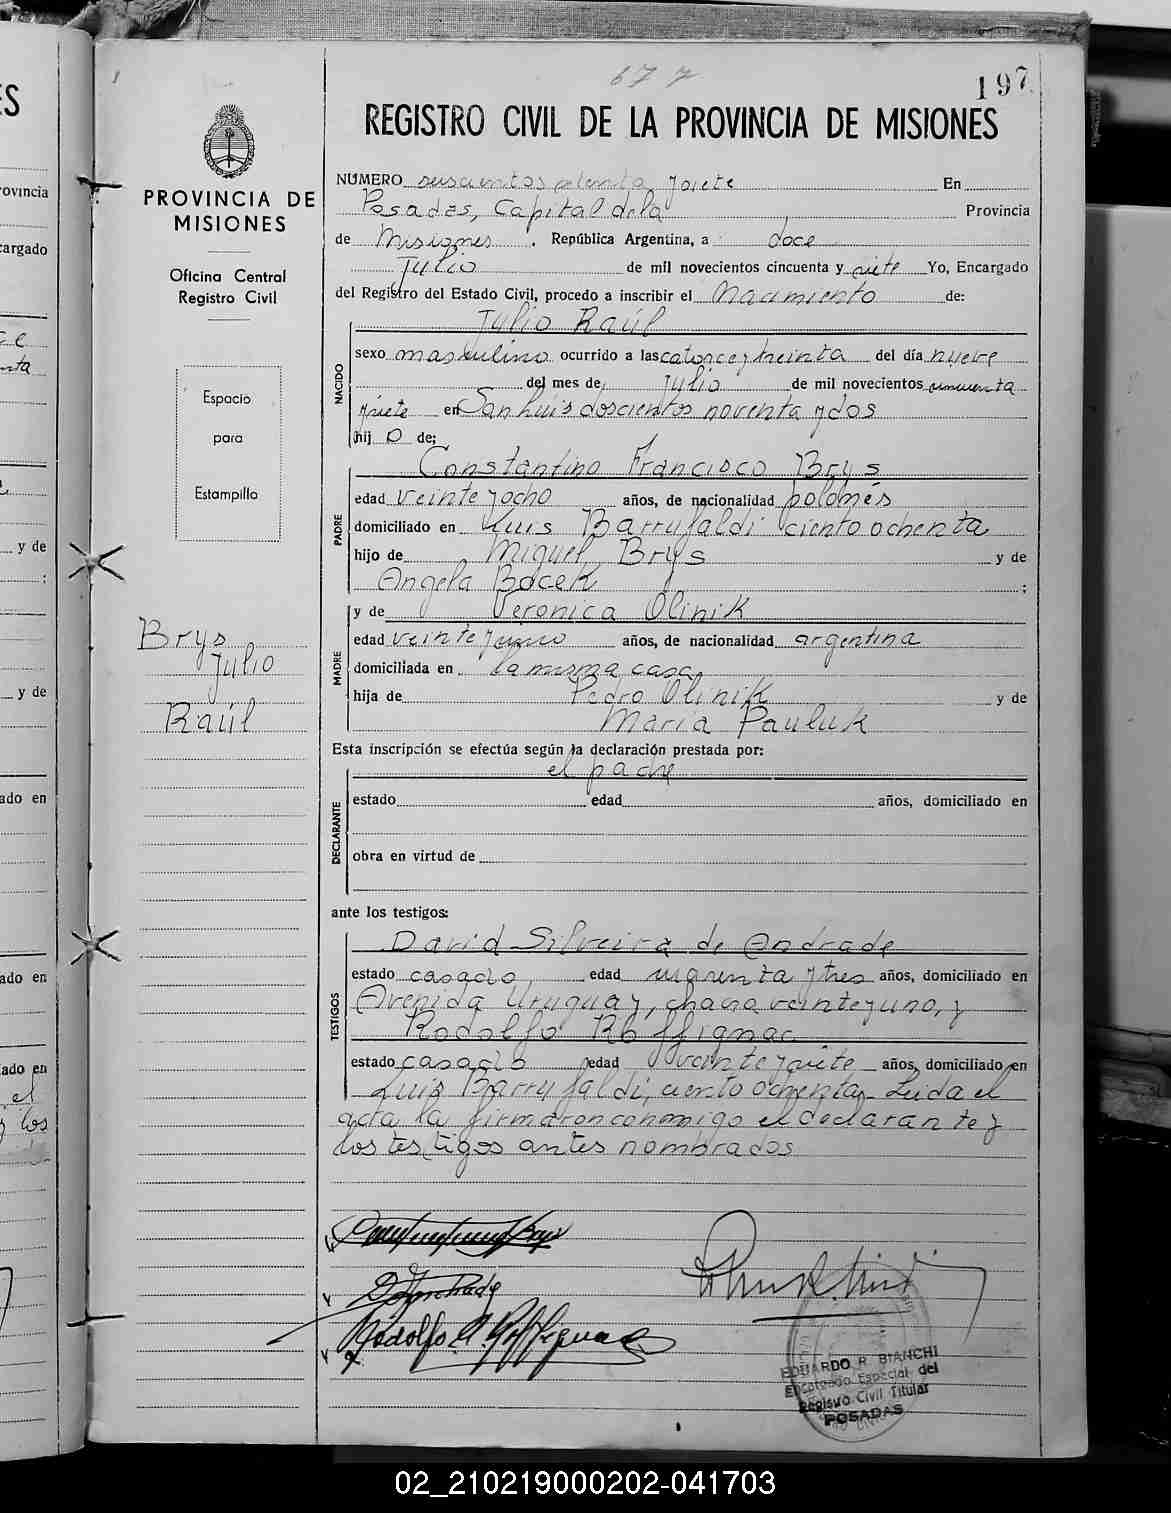 677
197
REGISTRO CIVIL DE LA PROVINCIA DE MISIONES
PROVINCIA DE
MISIONES
Oficina Central
Registro Civil
Espacio
para
Estampilla
Brys
Julio
Raúl
NUMERO seiscientos setenta y siete En
Posadas, Capital de la Provincia
de Misiones. República Argentina, a doce
Julio de mil novecientos cincuenta y siete Yo, Encargado
del Registro del Estado Civil, procedo a inscribir el Nacimiento de:
Julio Raúl
NACIDO
sexo masculino ocurrido a las catorce y treinta del día nueve
del mes de Julio de mil novecientos cincuenta
y siete en San Luis doscientos noventa y dos
hij o de:
Constantino Francisco Brys
PADRE
edad veinte y ocho años, de nacionalidad polonés
domiciliado en Luis Barrufaldi ciento ochenta
hijo de Miguel Brys y de
Angela Bocek ;
y de Veronica Olinik
MADRE
edad veinte y cinco años, de nacionalidad argentina
domiciliada en la misma casa
hija de Pedro Olinik y de
Maria Pauluk
Esta inscripción se efectúa según la declaración prestada por:
el padre
DECLARANTE
estado edad años, domiciliado en
obra en virtud de
ante los testigos:
David Silveira de Andrade
TESTIGOS
estado casado edad cuarenta y tres años, domiciliado en
Avenida Uruguay, chacra veinte y uno, y
Rodolfo Roffignac
estado casado edad veinte y siete años, domiciliado en
Luis Barrufaldi, ciento ochenta. Leida el
acta la firmaron conmigo el declarante y
los testigos antes nombrados
Rodolfo A. Roffignac
EDUARDO R. BIANCHI
Encargado Especial del
Registro Civil Titular
POSADAS
ovincia
cargado
y de
y de
ado en
ado en
ado en
el
y los
02_210219000202-041703